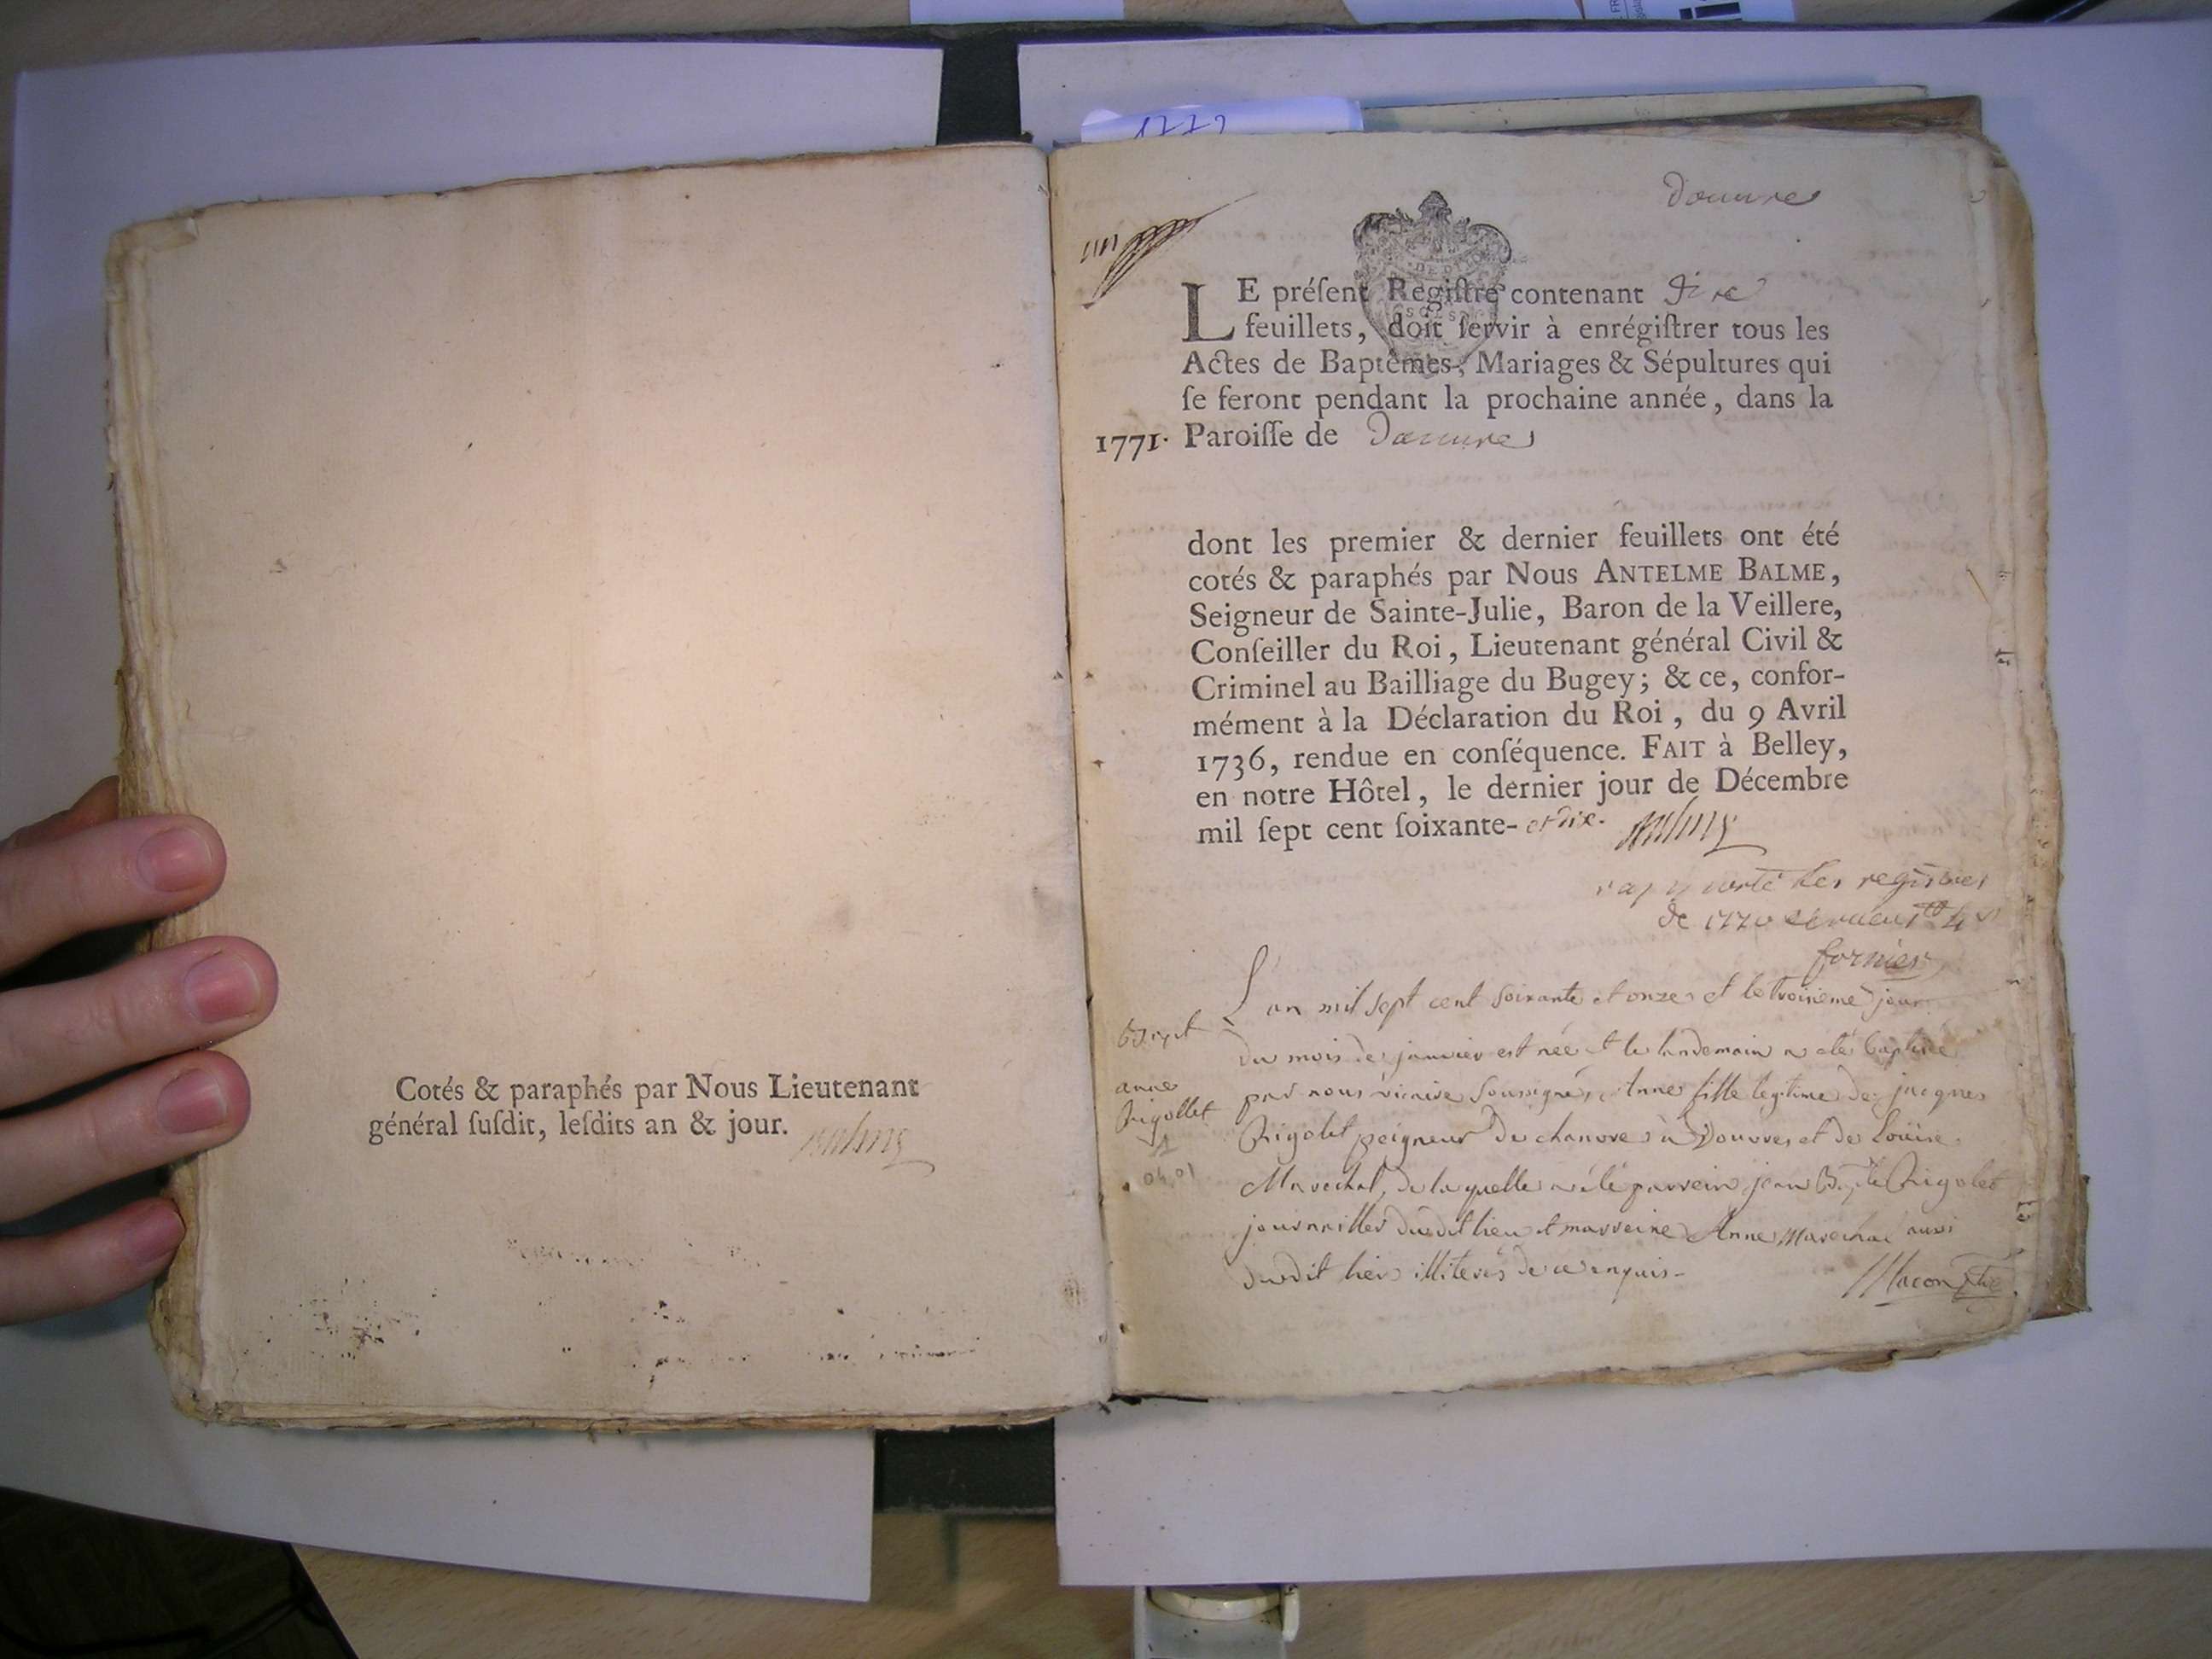 Cotés & paraphés par Nous Lieutenant
général ſuſdit, leſdits an & jour.
1772
Douvres
LE préſent Regiſtre contenant dix
feuillets, doit ſervir à enrégiſtrer tous les
Actes de Baptêmes, Mariages & Sépultures qui
ſe feront pendant la prochaine année, dans la
1771. Paroiſſe de Douvres
dont les premier & dernier feuillets ont été
cotés & paraphés par Nous ANTELME BALME,
Seigneur de Sainte-Julie, Baron de la Veillere,
Conſeiller du Roi, Lieutenant général Civil &
Criminel au Bailliage du Bugey; & ce, confor-
mément à la Déclaration du Roi, du 9 Avril
1736, rendue en conſéquence. FAIT à Belley,
en notre Hôtel, le dernier jour de Décembre
mil ſept cent ſoixante- et dix.
les registres
de 1770
fornier
L'an mil sept cent soixante et onze et le troisieme jour
Bapt
du mois de janvier est née et le landemain a été baptisée
anne
par nous vicaire soussigné, Anne fille legitime de jacques
Rigollet
Rigolet peigneur de chanvre à Douvres et de Louise
04.01
Marechal, de laquelle a été parrein jean Bapte Rigolet
journallier dudit lieu et marreine Anne Marechal aussi
dudit lieu illiterés de ce enquis-
Macon